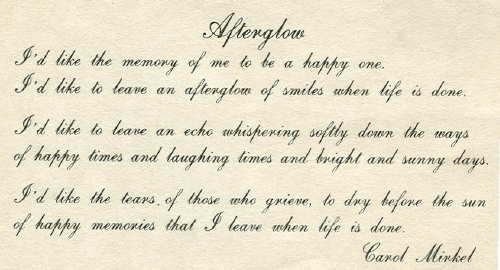 Afterglow
I'd like the memory of me to be a happy one.
I'd like to leave an afterglow of smiles when life is done.
I'd like to leave an echo whispering softly down the ways
of happy times and laughing times and bright and sunny days.
I'd like the tears of those who grieve, to dry before the sun
of happy memories that I leave when life is done.
Carol Mirkel